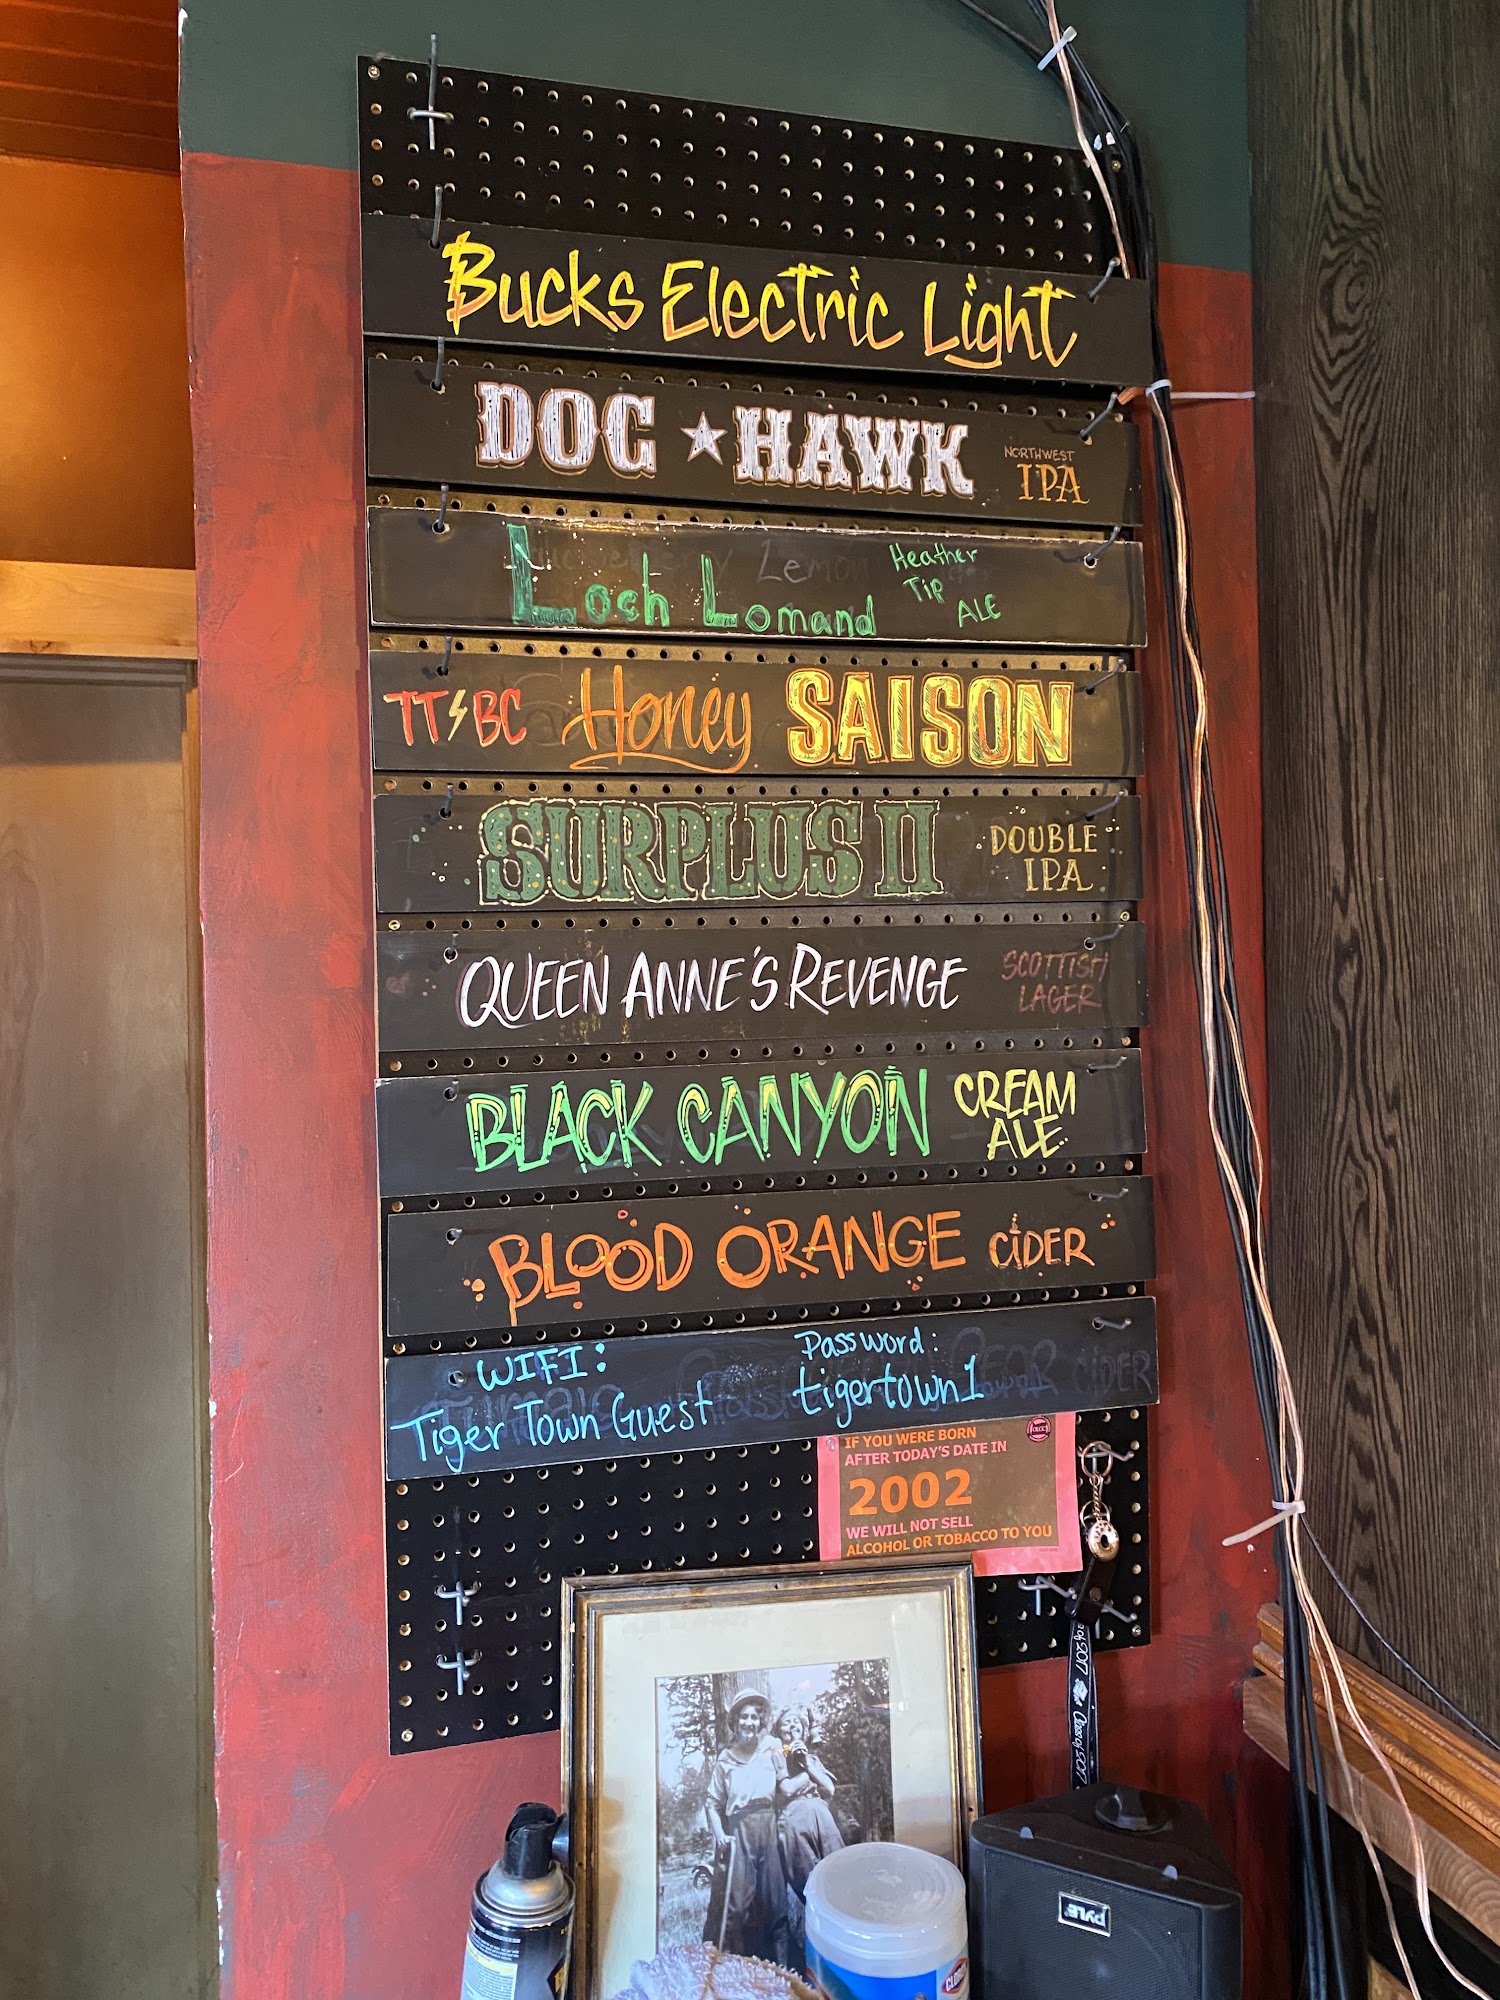 Bucks Electric Light
DOC ★ HAWK
NORTHWEST
IPA
Loch Lomand
Heather
Tip
ALE
TT⚡BC Honey SAISON
SURPLUS II
DOUBLE
IPA
QUEEN ANNE'S REVENGE
SCOTTISH
LAGER
BLACK CANYON
CREAM
ALE
BLOOD ORANGE CIDER
WIFI:
Tiger Town Guest
Password:
tigertown1
CIDER
IF YOU WERE BORN
AFTER TODAY'S DATE IN
2002
WE WILL NOT SELL
ALCOHOL OR TOBACCO TO YOU
Class of 2017
PYLE
CLOROX